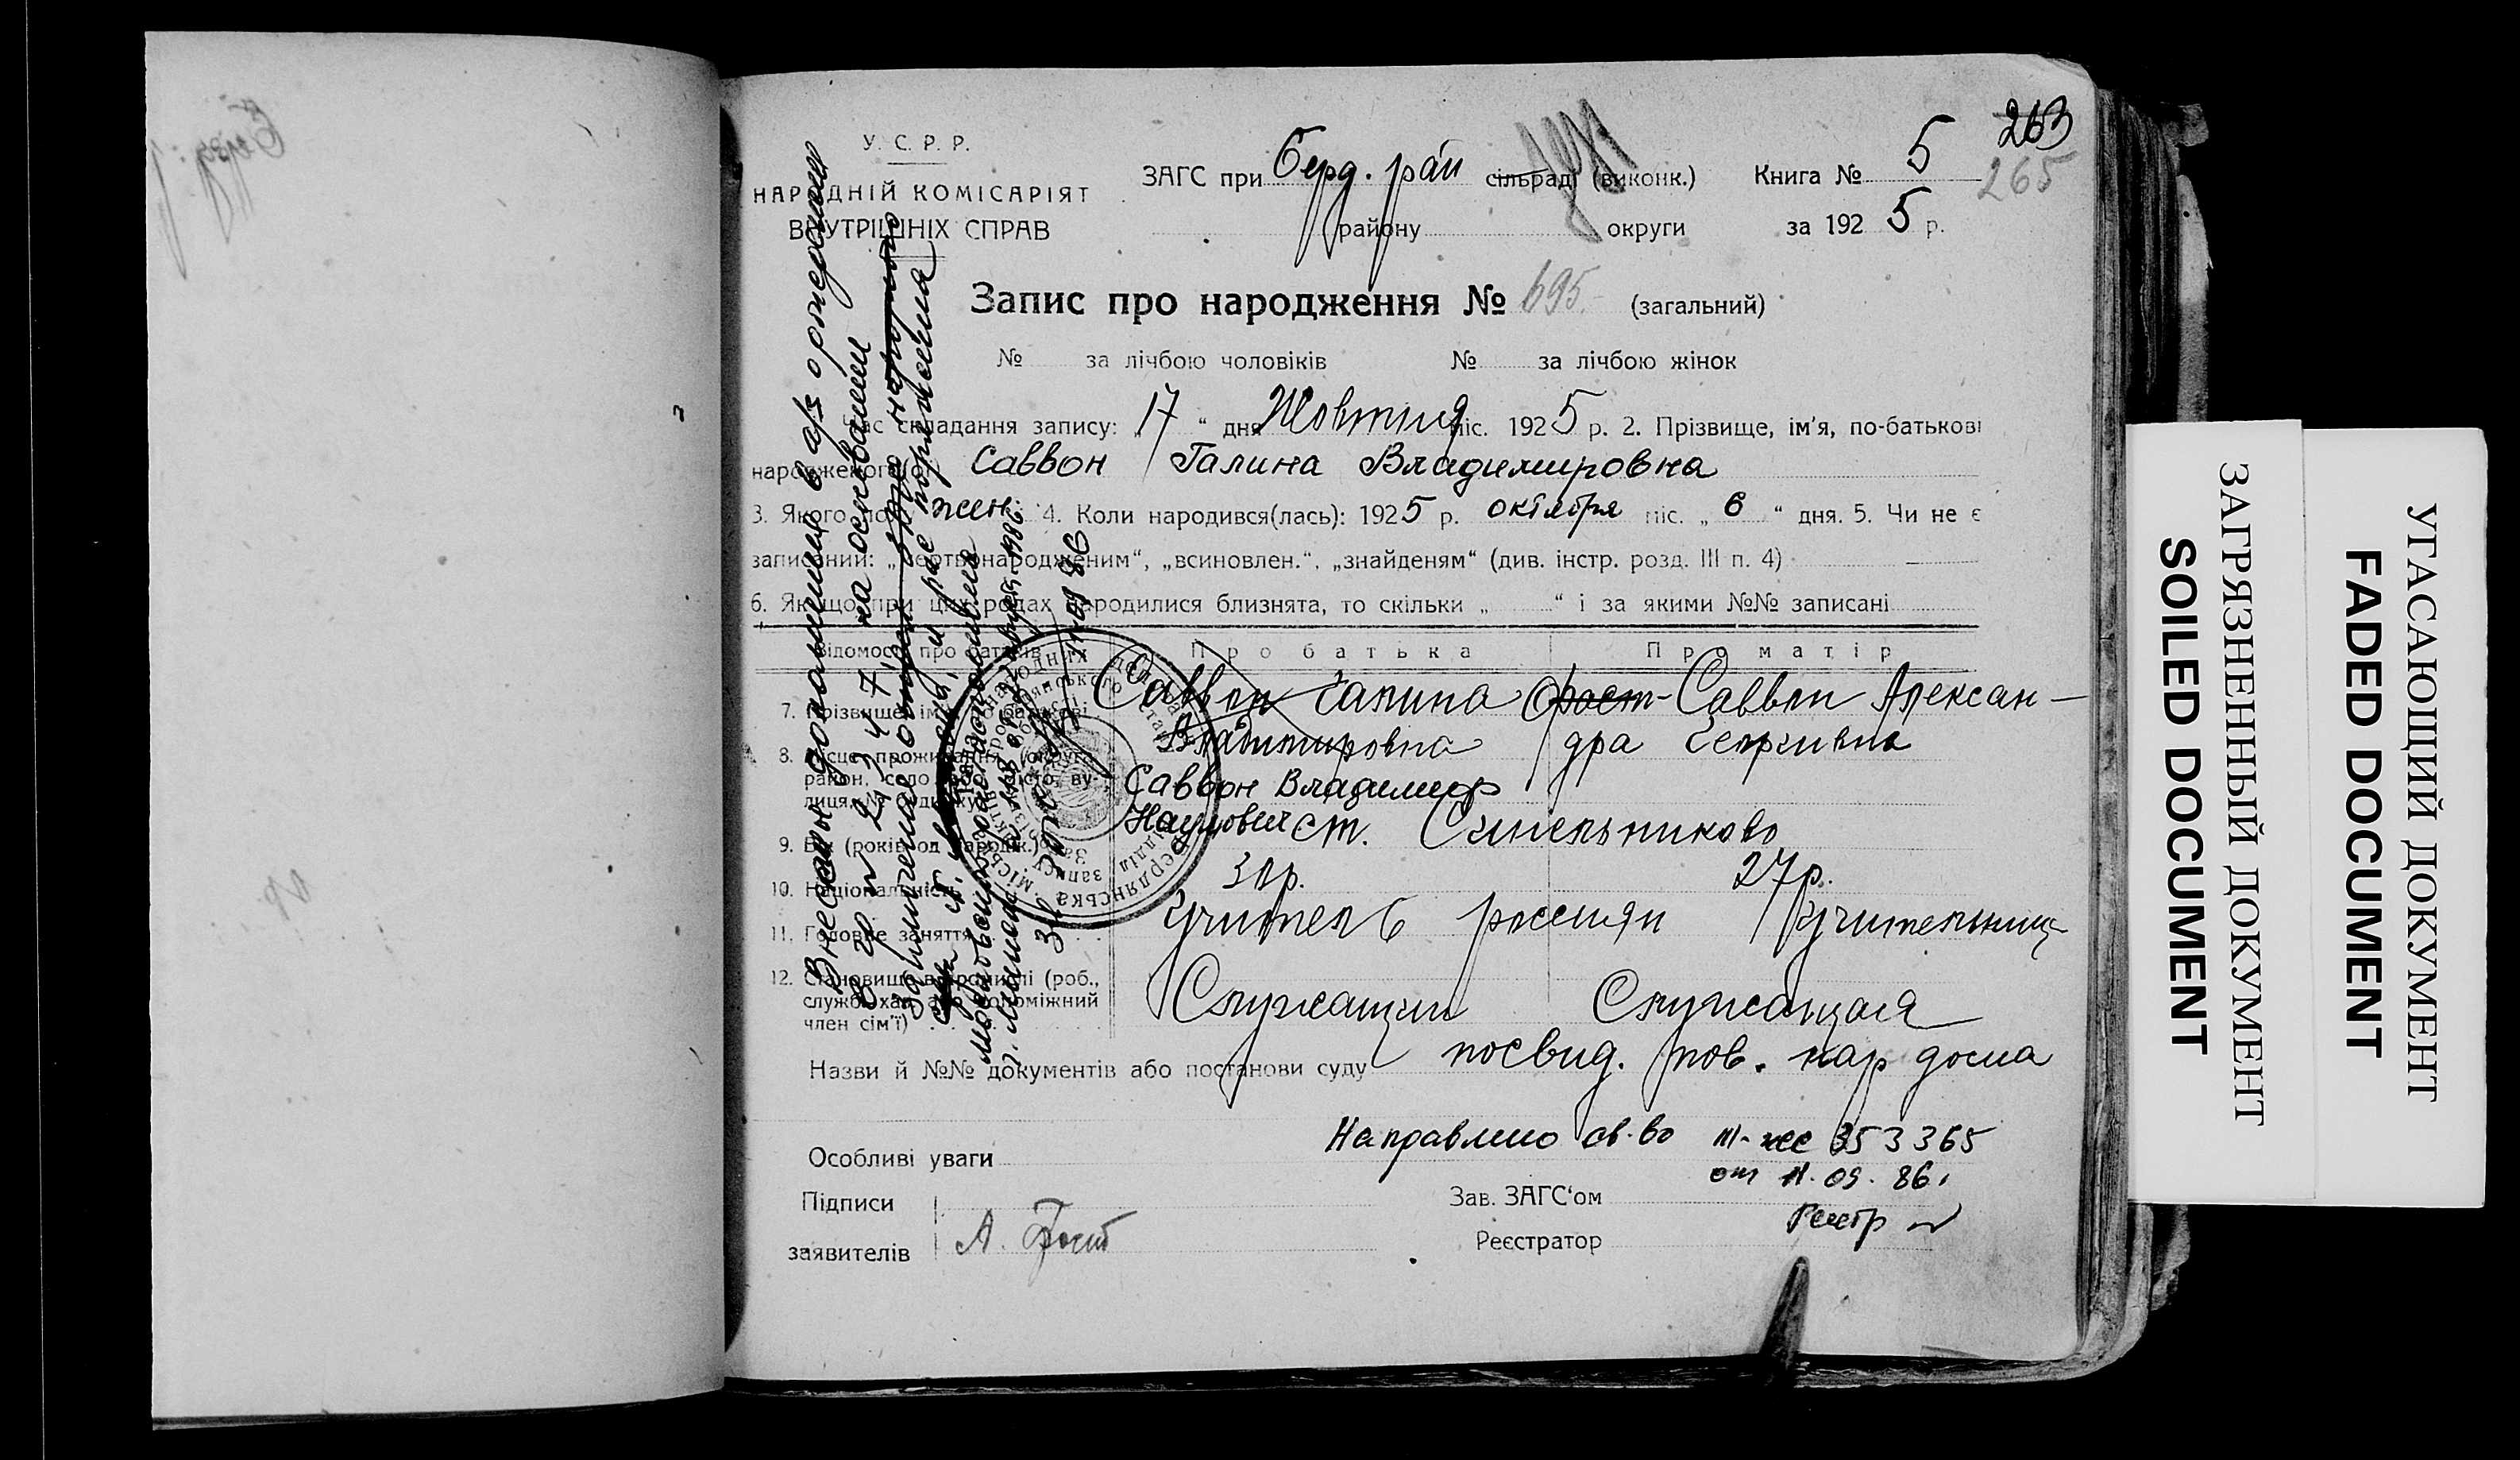 263
265
У. С. Р. Р.
НАРОДНІЙ КОМІСАРІЯТ
ВНУТРІШНІХ СПРАВ
ЗАГС при Берд. рай сільраді (виконк.) Книга № 5
району округи за 1925 р.
Запис про народження № 695 (загальний)
№ за лічбою чоловіків № за лічбою жінок
Час складання запису: „17“ дня Жовтня міс. 1925 р. 2. Прізвище, ім'я, по-батькові
народженого(ої) Саввон Галина Владимировна
3. Якого полу жен. 4. Коли народився(лась): 1925 р. октября міс. „6“ дня. 5. Чи не є
записаний: „мертвонародженим“, „всиновлен.“, „знайденям“ (див. інстр. розд. III п. 4)
6. Якщо при цих родах народилися близнята, то скільки „ “ і за якими №№ записані
Відомості про батьків Про батька Про матір
7. Прізвище, ім'я, по батькові Саввон Галина Фост-Саввон Алексан-
Владимировна дра Георгивна
8. Місце проживання (округа,
район, село або місто, ву-
лиця, № будинку)
Саввон Владимир
Наумович ст. Синельниково
9. Вік (років од народж.) 30р. 27р.
10. Національність
11. Головне заняття Учитель россиян Учительниц
12. Становище в промислі (роб.,
служб., хаз. або допоміжний
член сім'ї) Служащий Служащая
Назви й №№ документів або постанови суду посвид. пов. нар дома
Направлено св-во III-жс 353365
от 11.09.86.
Особливі уваги
Підписи
заявителів А. Фост
Зав. ЗАГС'ом
Реєстратор
Внесены дополнения в а/з о рождении
в гр 2 3 4 7 на основании
11 09 86
УГАСАЮЩИЙ ДОКУМЕНТ
FADED DOCUMENT
ЗАГРЯЗНЕННЫЙ ДОКУМЕНТ
SOILED DOCUMENT